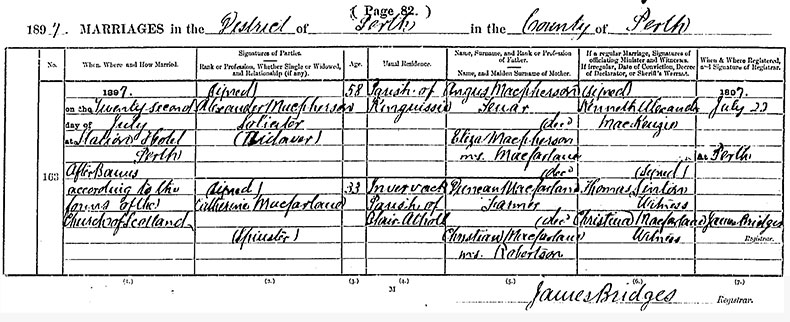 ( Page 82. )
1897. MARRIAGES in the District of Perth in the County of Perth
No. When, Where and How Married. Signatures of Parties. Rank or Profession, Whether Single or Widowed, and Relationship (if any). Age. Usual Residence. Name, Surname, and Rank or Profession of Father. Name, and Maiden Surname of Mother. If a regular Marriage, Signatures of officiating Minister and Witnesses. If irregular, Date of Conviction, Decree of Declarator, or Sheriff's Warrant. When & Where Registered, and Signature of Registrar.
1897. (Signed) 58 Parish of Angus Macpherson (signed) 1897
on the Twenty second Alexander Macpherson Kingussie Tenar Kenneth Alexander July 23
day of July Solicitor (decd) MacKenzie
at Station Hotel (Widower) Eliza Macpherson
Perth m.s. Macfarlane at Perth
163 After Banns (decd) (Signed)
according to the (Signed) 33 Invervack Duncan Macfarlane Thomas Sinton
forms of the Catherine Macfarlane Parish of Farmer Witness
Church of Scotland Blair Atholl (decd) Christina Macfarlane James Bridges
(Spinster) Christian Macfarlane Witness Registrar.
m.s. Robertson
(1.) (2.) (3.) (4.) (5.) (6.) (7.)
M
James Bridges Registrar.